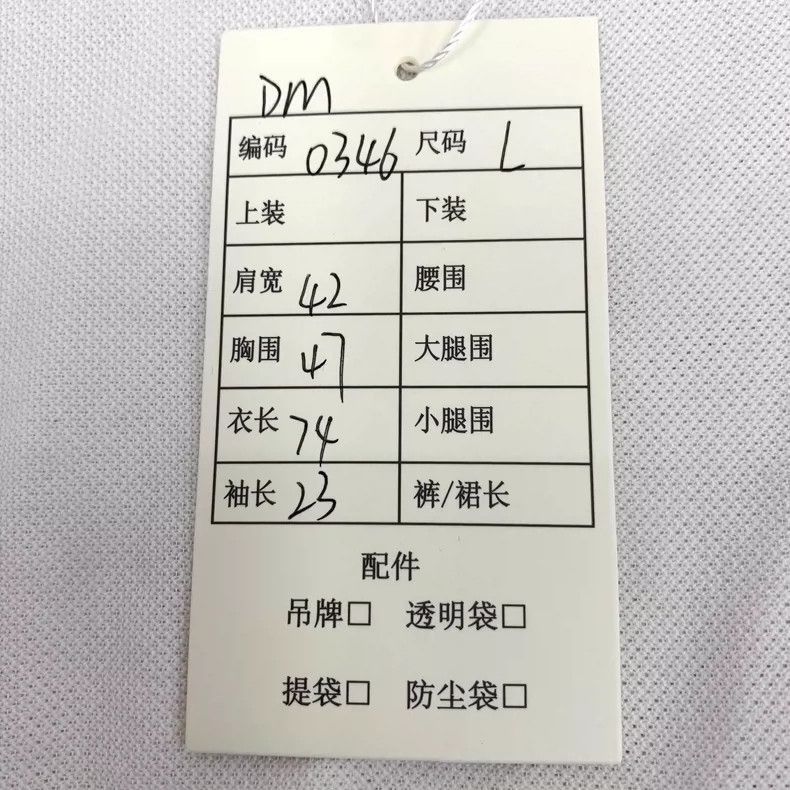 DM
编码 0346 尺码 L
上装 下装
肩宽 42 腰围
胸围 47 大腿围
衣长 74 小腿围
袖长 23 裤/裙长
配件
吊牌□ 透明袋□
提袋□ 防尘袋□